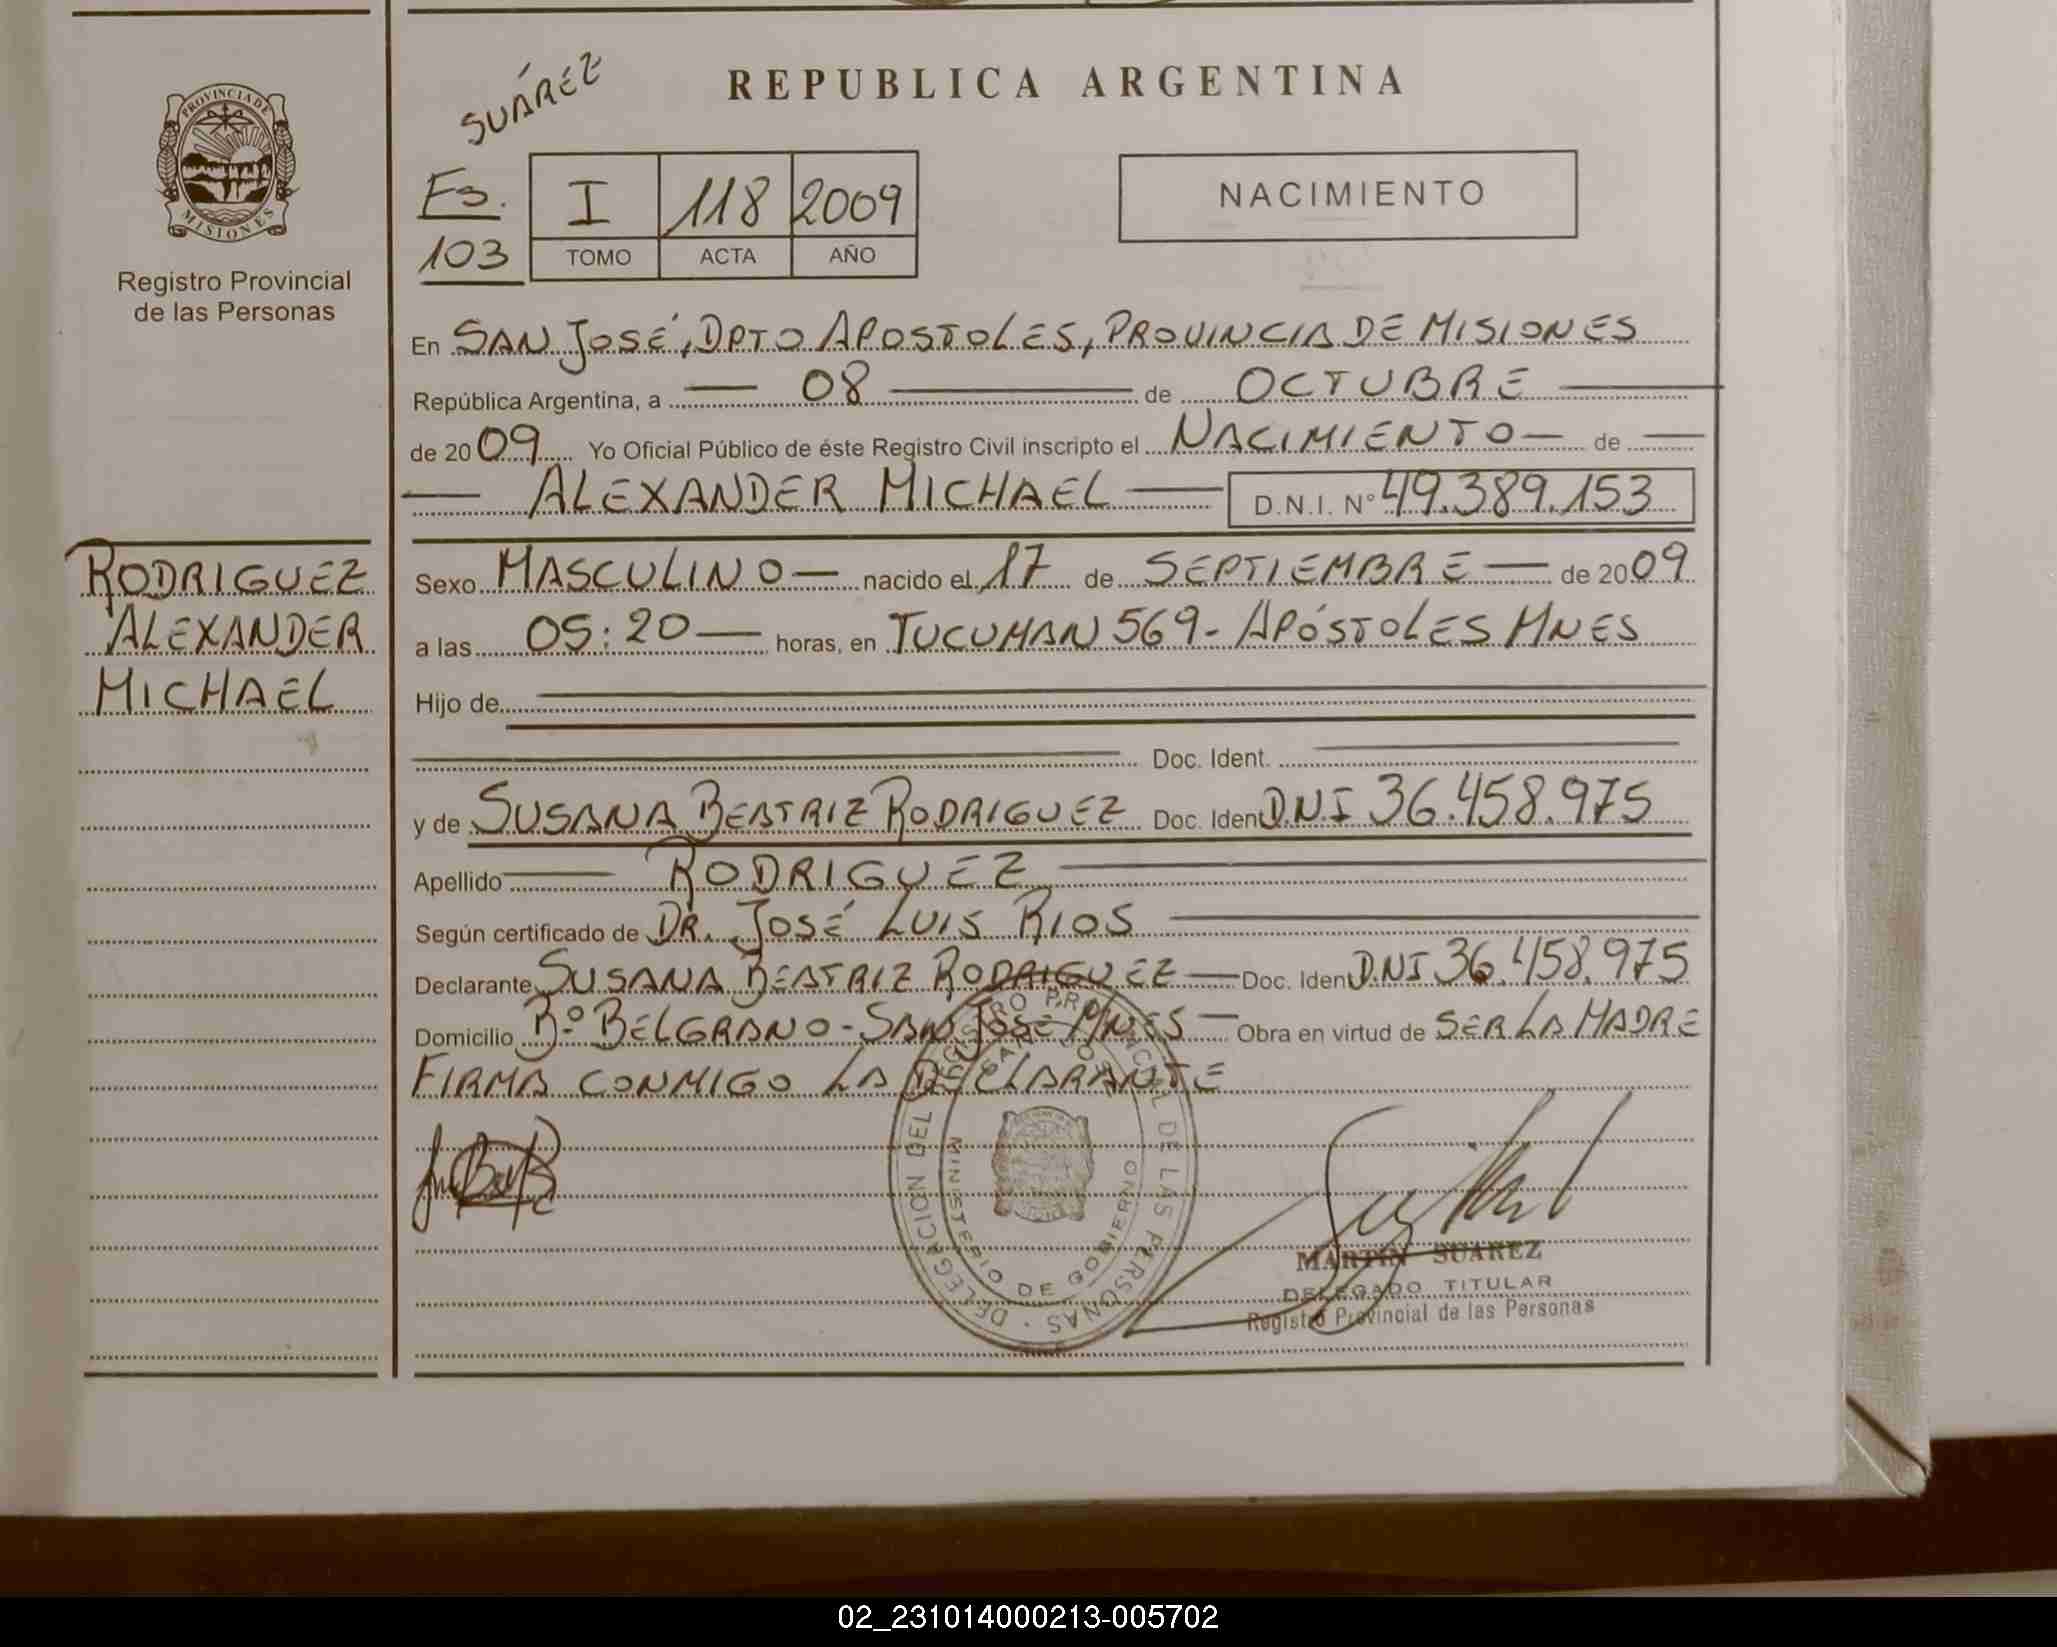 PROVINCIA DE
MISIONES
Registro Provincial
de las Personas
RODRIGUEZ
ALEXANDER
MICHAEL
REPUBLICA ARGENTINA
SUÁREZ
Fs.
103
I 118 2009
TOMO ACTA AÑO
NACIMIENTO
En SAN JOSÉ, DPTO APOSTOLES, PROVINCIA DE MISIONES
República Argentina, a 08 de OCTUBRE
de 2009 Yo Oficial Público de éste Registro Civil inscripto el NACIMIENTO de
ALEXANDER MICHAEL D.N.I. Nº 49.389.153
Sexo MASCULINO nacido el 17 de SEPTIEMBRE de 2009
a las 05:20 horas, en TUCUMAN 569 - APÓSTOLES MNES
Hijo de
Doc. Ident.
y de SUSANA BEATRIZ RODRIGUEZ Doc. Iden D.N.I 36.458.975
Apellido RODRIGUEZ
Según certificado de DR. JOSÉ LUIS RIOS
Declarante SUSANA BEATRIZ RODRIGUEZ Doc. Iden D.NI 36.458.975
Domicilio Bº BELGRANO - SAN JOSÉ MNES Obra en virtud de SER LA MADRE
FIRMA CONMIGO LA DECLARANTE
DELEGACION DEL REGISTRO PROVINCIAL DE LAS PERSONAS
SAN JOSE
MINISTERIO DE GOBIERNO
MARTIN SUAREZ
DELEGADO TITULAR
Registro Provincial de las Personas
02_231014000213-005702